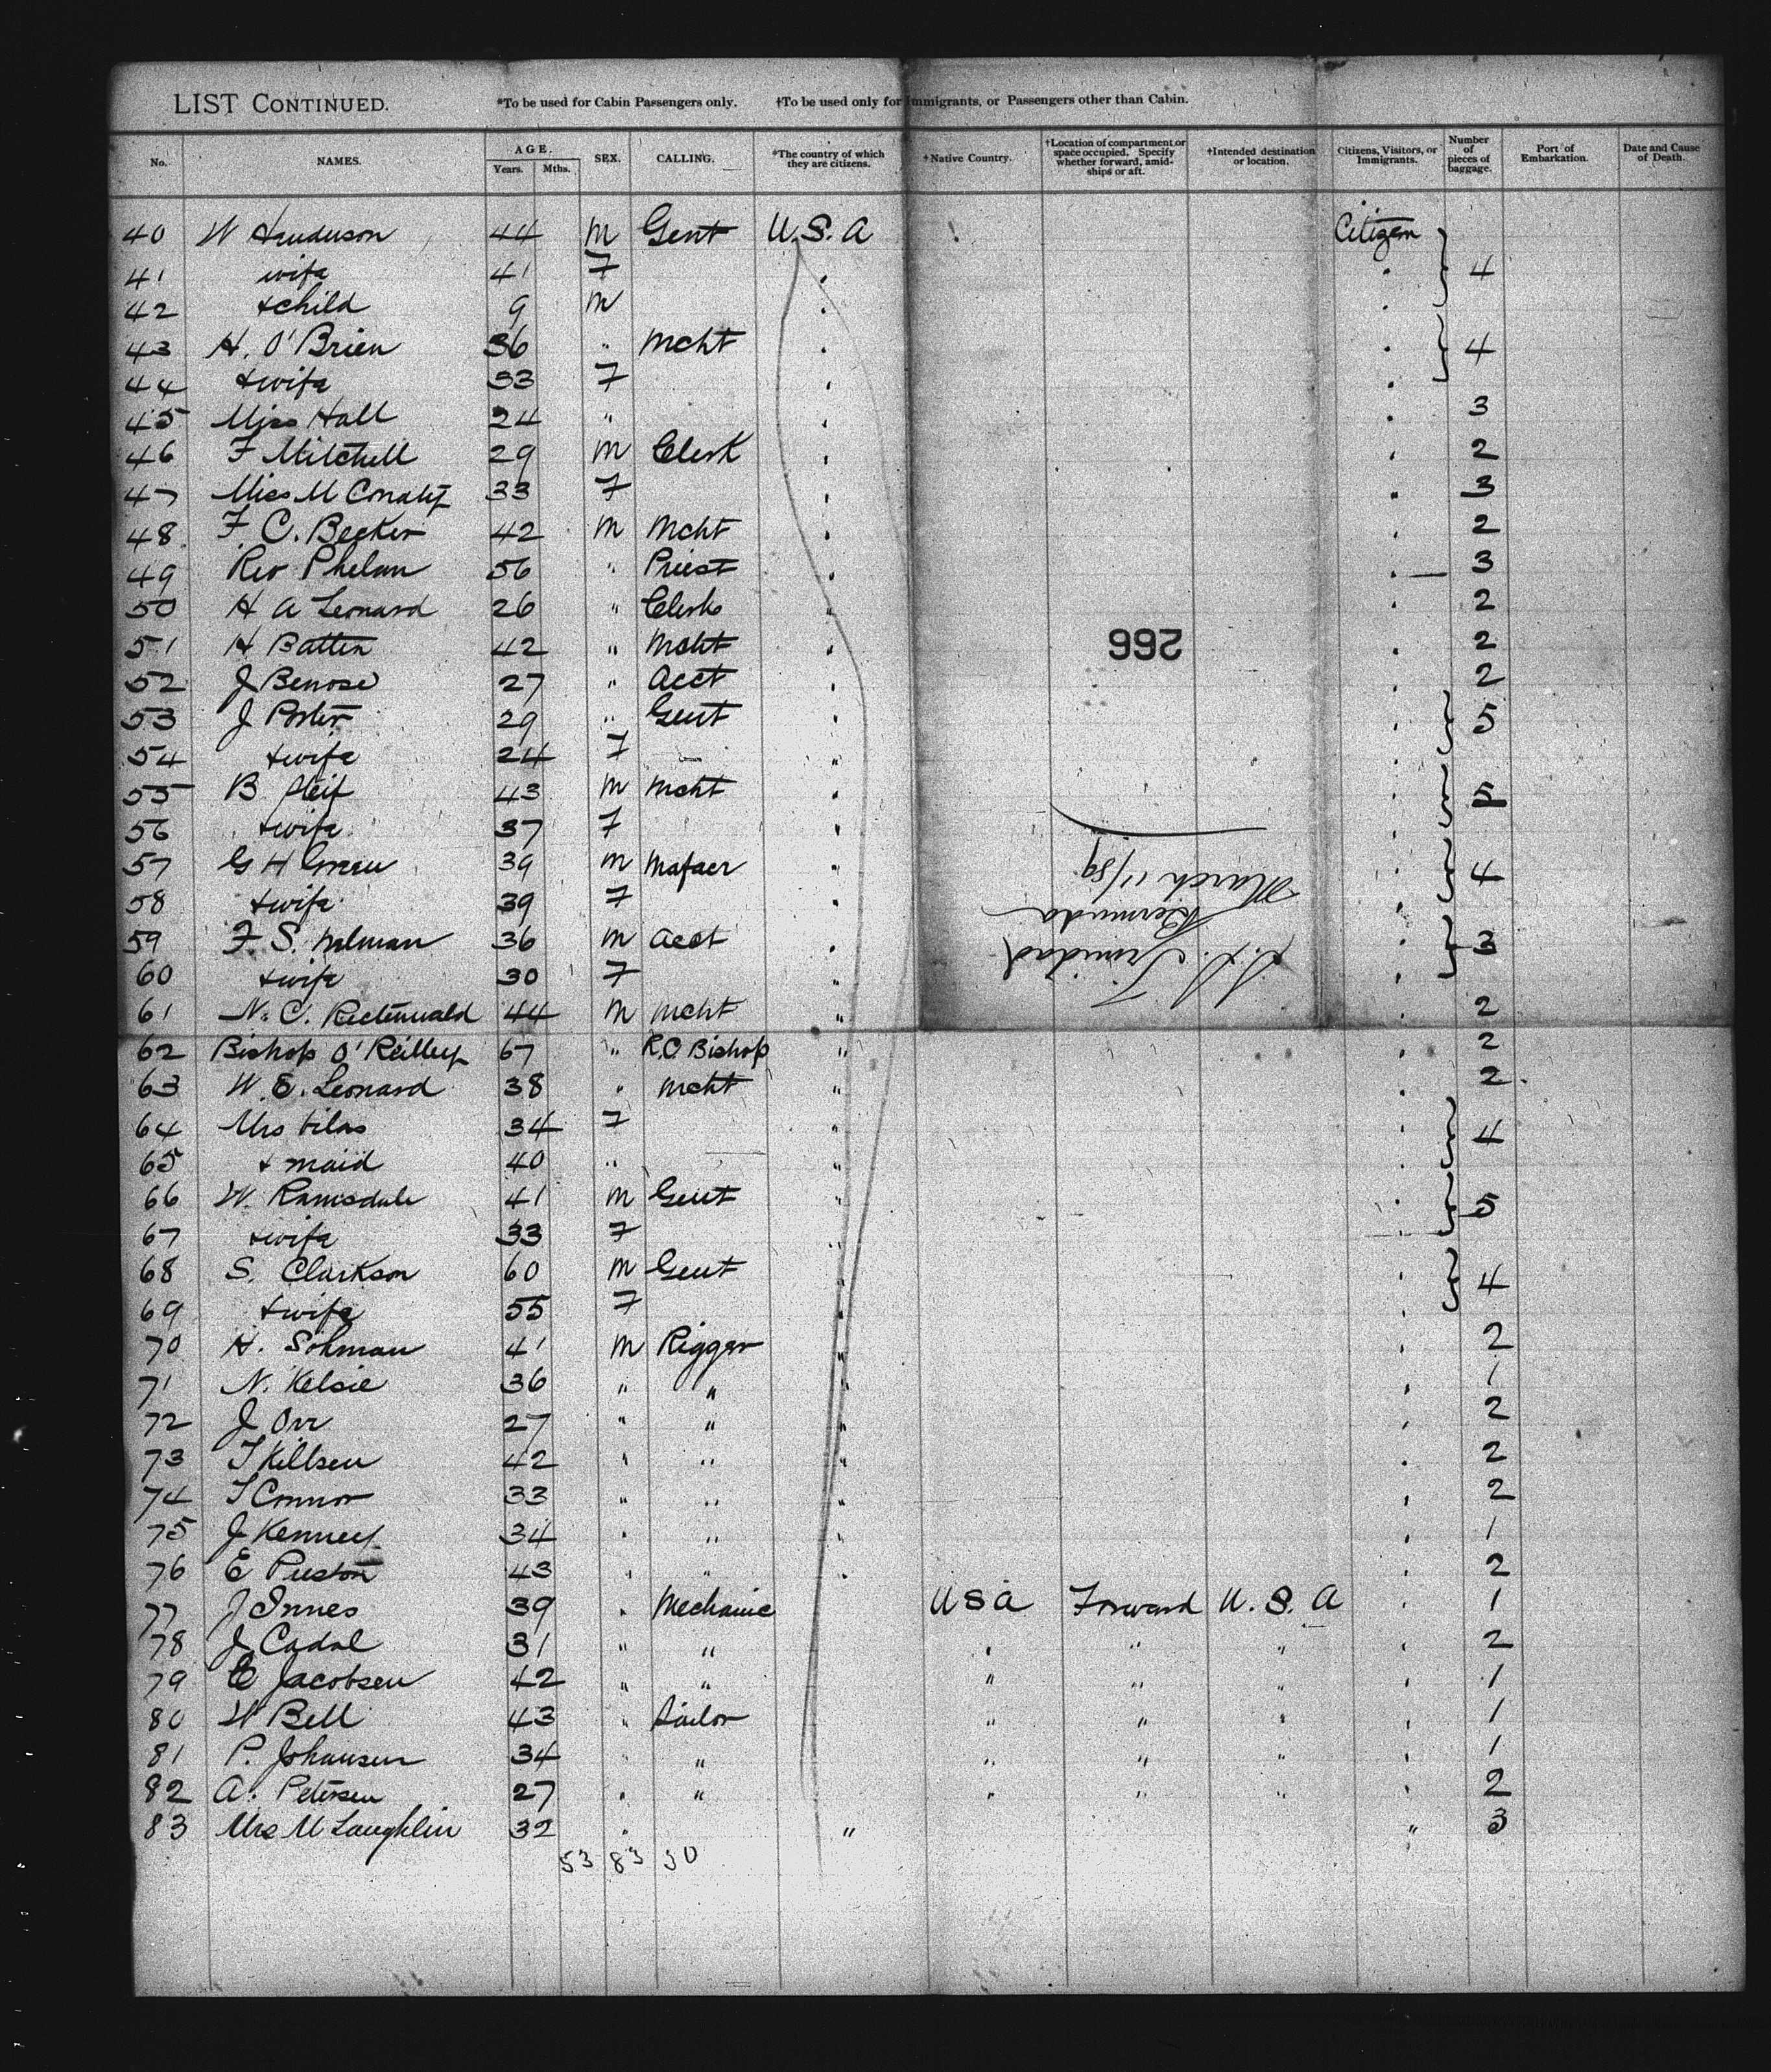 LIST CONTINUED. *To be used for Cabin Passengers only. †To be used only for Immigrants, or Passengers other than Cabin.
No. NAMES. AGE. Years. Mths. SEX. CALLING. *The country of which they are citizens. †Native Country. †Location of compartment or space occupied. Specify whether forward, amidships or aft. †Intended destination or location. Citizens, Visitors, or Immigrants. Number of pieces of baggage. Port of Embarkation. Date and Cause of Death.
40 W Henderson 44 M Gent U.S.A Citizen
41 wife 41 F " " 4
42 +child 9 M " "
43 H. O'Brien 36 " Mcht " " 4
44 +wife 33 F " "
45 Miss Hall 24 " " " 3
46 F Mitchell 29 M Clerk " " 2
47 Miss M Conaty 33 F " " 3
48 F. C. Becker 42 M Mcht " " 2
49 Rev Phelan 56 " Priest " " 3
50 H A Leonard 26 " Clerk " " 2
51 H Batten 42 " Mcht " " 2
52 J Benose 27 " Acct " " 2
53 J Porter 29 " Gent " " 5
54 +wife 24 F " "
55 B 43 M Mcht " " 5
56 +wife 37 F " "
57 G H Green 39 M " " 4
58 +wife 39 F " "
59 F. S. 36 M Acct " " 3
60 +wife 30 F " "
61 N. C. Rectenwald 44 M Mcht " " 2
62 Bishop O'Reilley 67 " R.C Bishop " " 2
63 W. E. Leonard 38 " Mcht " " 2
64 Mrs Vilas 34 F " " 4
65 + maid 40 " " "
66 W. Ramsdale 41 M Gent " " 5
67 +wife 33 F " "
68 S. Clarkson 60 M Gent " " 4
69 +wife 55 F " "
70 H. Sohman 41 M Rigger " " 2
71 N. Kelsie 36 " " " " 1
72 J Orr 27 " " " " 2
73 T Killsen 42 " " " " 2
74 T Connor 33 " " " " 2
75 J Kenney 34 " " " " 1
76 E Preston 43 " " " " 2
77 J Innes 39 " Mechanic USA Forward U.S.A " 1
78 J Cadal 31 " " " " " " 2
79 E Jacobsen 42 " " " " " " 1
80 W Bell 43 " Sailor " " " " 1
81 P. Johansen 34 " " " " " " 1
82 A. Petersen 27 " " " " " " 2
83 Mrs M Laughlin 32 " " " 3
53 83 30
266
S.S. Trinidad
Bermuda
March 11/89